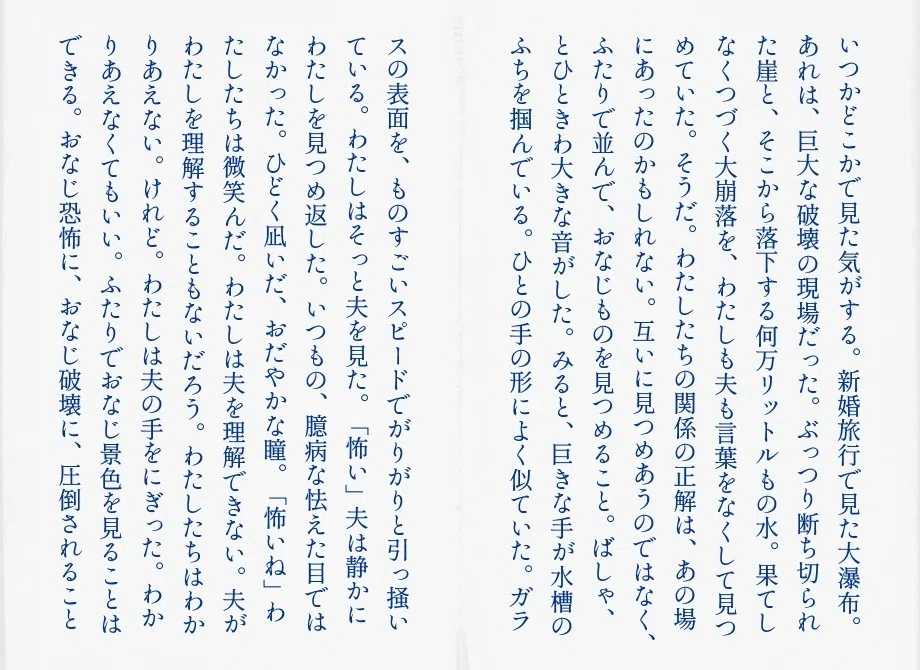 いつかどこかで見た気がする。新婚旅行で見た大瀑布。
あれは、巨大な破壊の現場だった。ぶっつり断ち切られ
た崖と、そこから落下する何万リットルもの水。果てし
なくつづく大崩落を、わたしも夫も言葉をなくして見つ
めていた。そうだ。わたしたちの関係の正解は、あの場
にあったのかもしれない。互いに見つめあうのではなく、
ふたりで並んで、おなじものを見つめること。ばしゃ、
とひときわ大きな音がした。みると、巨きな手が水槽の
ふちを掴んでいる。ひとの手の形によく似ていた。ガラ
スの表面を、ものすごいスピードでがりがりと引っ掻い
ている。わたしはそっと夫を見た。「怖い」夫は静かに
わたしを見つめ返した。いつもの、臆病な怯えた目では
なかった。ひどく凪いだ、おだやかな瞳。「怖いね」わ
たしたちは微笑んだ。わたしは夫を理解できない。夫が
わたしを理解することもないだろう。わたしたちはわか
りあえない。けれど。わたしは夫の手をにぎった。わか
りあえなくてもいい。ふたりでおなじ景色を見ることは
できる。おなじ恐怖に、おなじ破壊に、圧倒されること